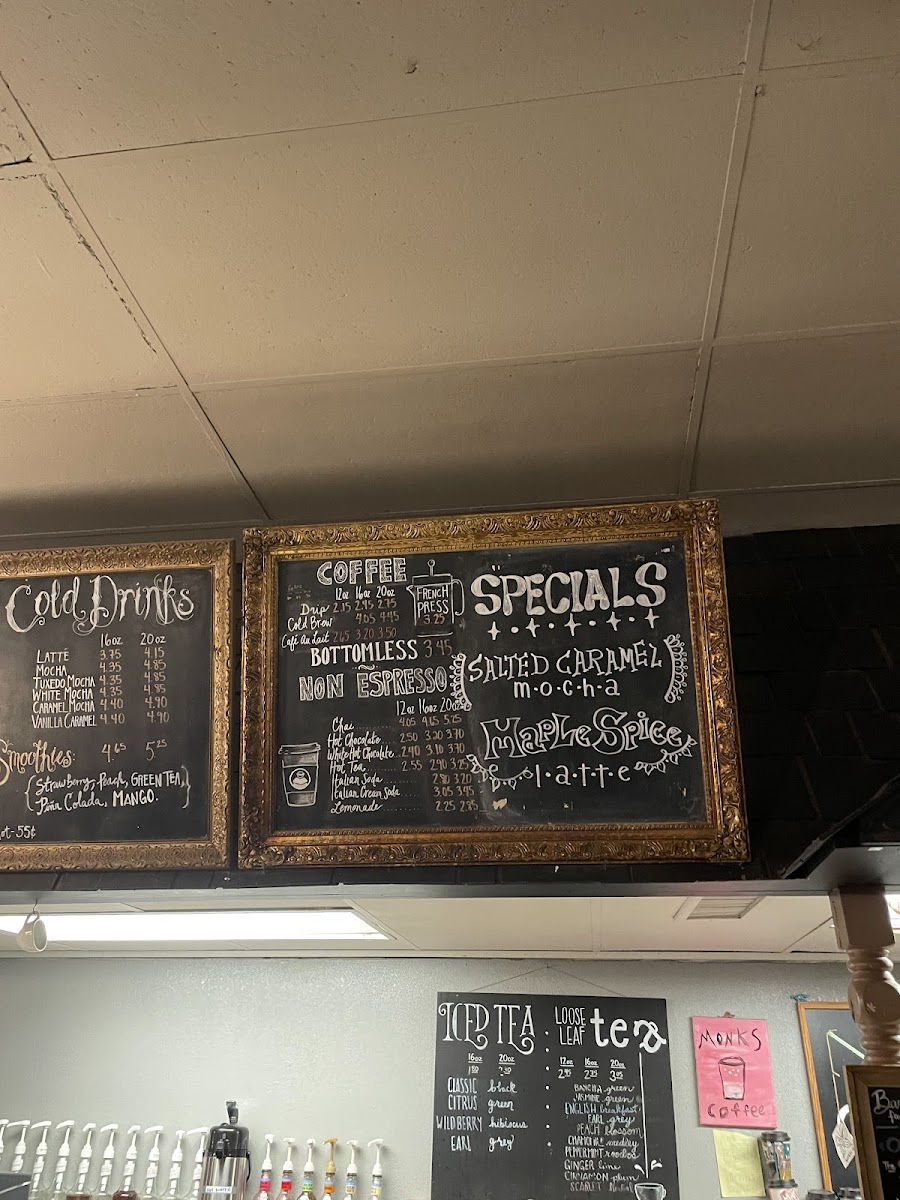 Cold Drinks
16oz 20oz
LATTE 3.75 4.15
MOCHA 4.35 4.85
TUXEDO MOCHA 4.35 4.85
WHITE MOCHA 4.35 4.85
CARAMEL MOCHA 4.40 4.90
VANILLA CARAMEL 4.40 4.90
Smoothies: 4.65 5.25
Strawberry, Peach, GREEN TEA,
Piña Colada, MANGO.
55¢
COFFEE
12oz 16oz 20oz
Drip 2.15 2.45 2.75
Cold Brew 4.05 4.45
Café Au Lait 2.65 3.20 3.50
FRENCH
PRESS
3.25
BOTTOMLESS 3.45
NON ESPRESSO
12oz 16oz 20oz
Chai 4.05 4.65 5.25
Hot Chocolate 2.50 3.20 3.70
White Hot Chocolate 2.40 3.10 3.70
Hot Tea 2.55 2.90 3.25
Italian Soda 2.80 3.20
Italian Cream Soda 3.05 3.95
Lemonade 2.25 2.85
SPECIALS
SALTED CARAMEL
mocha
MAPLE SPICE
latte
ICED TEA
16oz 20oz
CLASSIC black
CITRUS green
WILDBERRY hibiscus
EARL grey
LOOSE
LEAF tea
12oz 16oz 20oz
BANCHA green
JASMINE green
ENGLISH breakfast
EARL grey
PEACH blossom
CHAMOMILE medley
PEPPERMINT rooibos
GINGER lime
CINNAMON plum
SCARLET
MONKS
Coffee